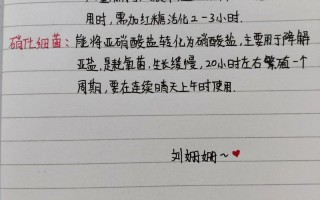 用时,需加红糖活化2-3小时.
硝化细菌:能将亚硝酸盐转化为硝酸盐,主要用于降解
亚盐.是耗氧菌,生长缓慢,20小时左右繁殖一个
周期,要在连续晴天上午时使用.
刘姗姗~